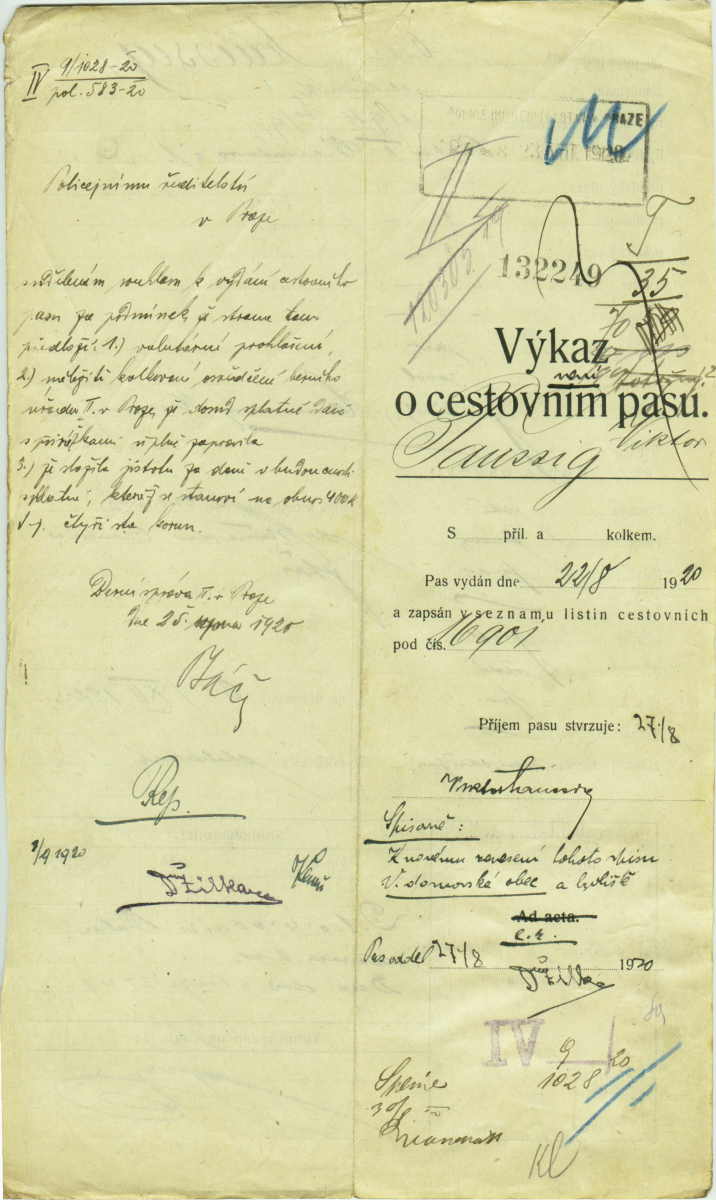 IV 9/1028-20
pol. 583-20
Policejnímu ředitelství
v Praze
sdělením souhlasu k vydání cestovního
pasu za podmínek, že strana tam
předloží: 1.) valutární prohlášení,
2.) kolkované osvědčení berního
úřadu II. v Praze, že dosud splatné daně
s přirážkami úplně zapravila
3.) že složila jistotu za daně v budoucnosti
splatné, kteráž se stanoví na obnos 400 K
t.j. čtyři sta korun.
Berní správa II. v Praze
dne 25. srpna 1920
Rep.
1/9 1920
Dr Zilka
PRAZE
1920
II
132249
T
35
70
Výkaz
o cestovním pasu.
Taussig Viktor
S příl. a kolkem.
Pas vydán dne 22/8 1920
a zapsán v seznamu listin cestovních
pod čís. 16901
Příjem pasu stvrzuje: 27/8
Viktor Taussig
Spisovně:
K novému zanesení tohoto spisu
V. domovská obec a bydliště
Ad acta.
Pas odděl 27/8 1920
Dr Zilka
IV 9/1028 20
30/8
Kl